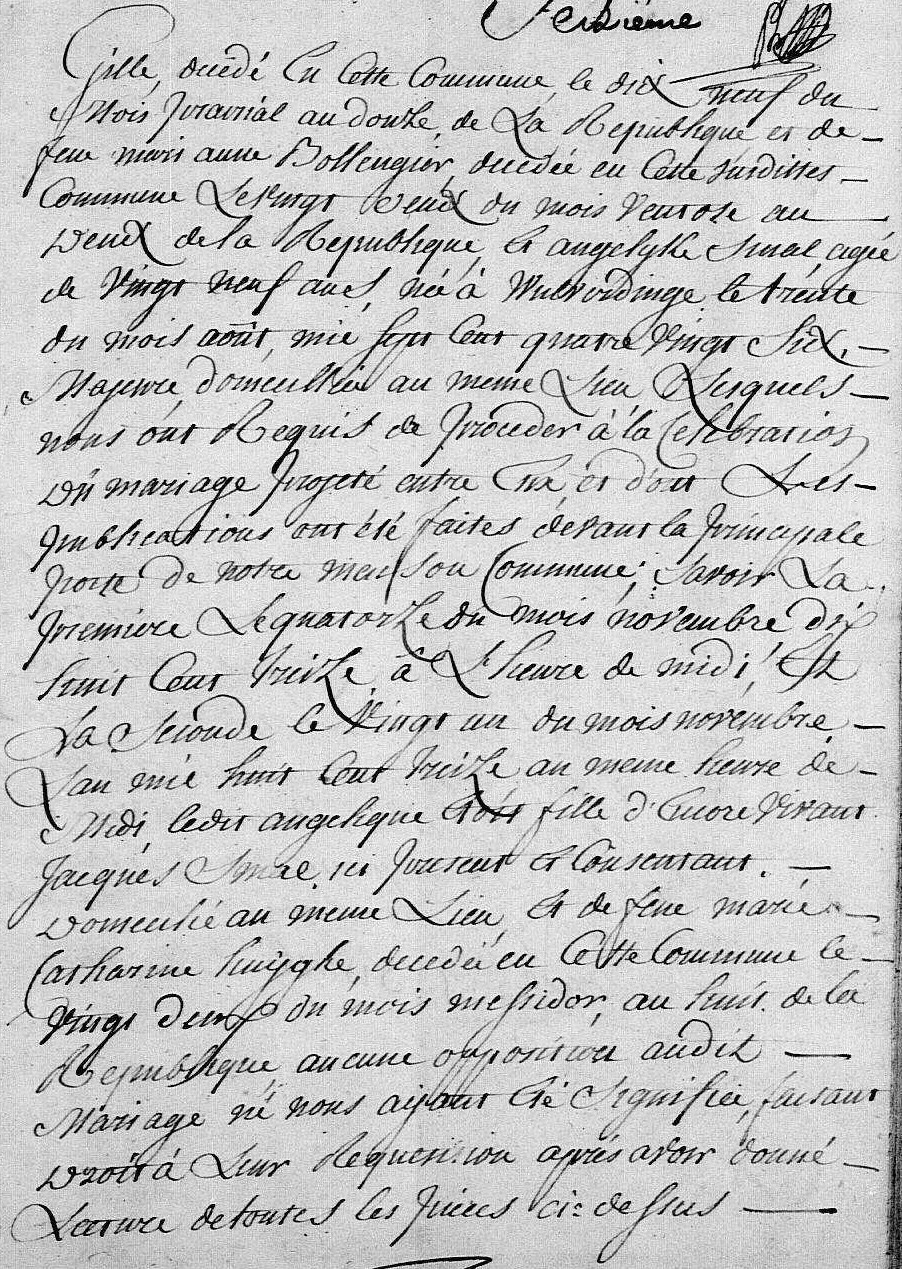 Seizième
Gille, decédé En Cette Commune, le dix neuf du
Mois prairial an douze, de La Republique et de
feue marie anne Bollengier, decedée en Cette surdittes
Commune Le vingt deux du mois Ventose an
Deux de la Republique, Et angelyke Smal, agée
de Vingt neuf ans, née à Wulverdinge le trente
du mois août, mie sept Cent quatre Vingt Six,
Majeure, domeciliée au meme Lieu Lesquels
nous ont Requis de proceder à la Celebration
Du mariage projeté entre Eux, et dont Les
publications ont été faites devant la principale
porte de notre meuson Commune; Savoir La
premiere Le quatorze du mois novembre dix
huit Cent treize à L'heure de midi, Et
La Seconde le Vingt un du mois novembre
L'an mie huit Cent treize au meme heure de
Midi ledit angelique Etoit fille d'Encore Vivant
Jacques Smal, ici present et Consentant.
Domecilié au meme Lieu, Et de feue marie
Catharine huyghe, decedée en Cette Commune le
Vingt deux du mois messidor, an huit de la
Republique aucune opposition audit
Mariage né nous aiyant Eté Signifiée, faisant
Droit á Leur Requesision aprés avoir donné
Lecture de toutes les pieces ci=dessus